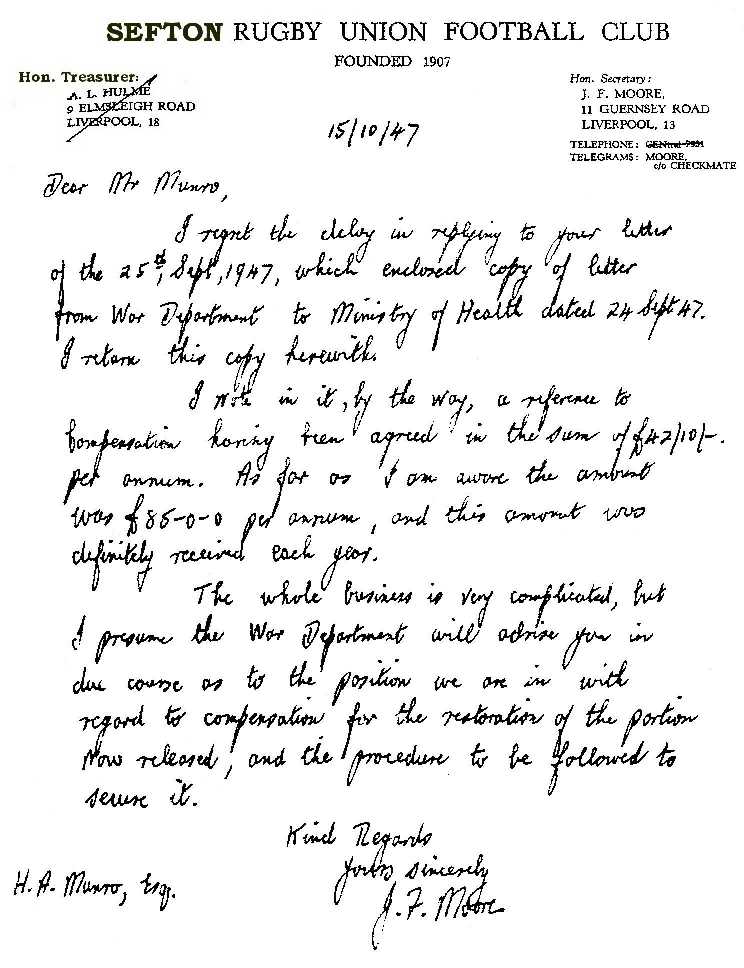 SEFTON RUGBY UNION FOOTBALL CLUB
FOUNDED 1907
Hon. Treasurer:
A. L. HULME
9 ELMSLEIGH ROAD
LIVERPOOL, 18
Hon. Secretary:
J. F. MOORE,
11 GUERNSEY ROAD
LIVERPOOL, 13
TELEPHONE: GENtral 7931
TELEGRAMS: MOORE,
c/o CHECKMATE
15/10/47
Dear Mr Munro,
I regret the delay in replying to your letter
of the 25th, Sept, 1947, which enclosed copy of letter
from War Department to Ministry of Health dated 24 Sept 47.
I return this copy herewith.
I note in it, by the way, a reference to
Compensation having been agreed in the sum of £42/10/-.
per annum. As far as I am aware the amount
was £85-0-0 per annum, and this amount was
definitely received each year.
The whole business is very complicated, but
I presume the War Department will advise you in
due course as to the position we are in with
regard to compensation for the restoration of the portion
now released, and the procedure to be followed to
secure it.
Kind Regards
Yours sincerely
J. F. Moore
H. A. Munro, Esq.